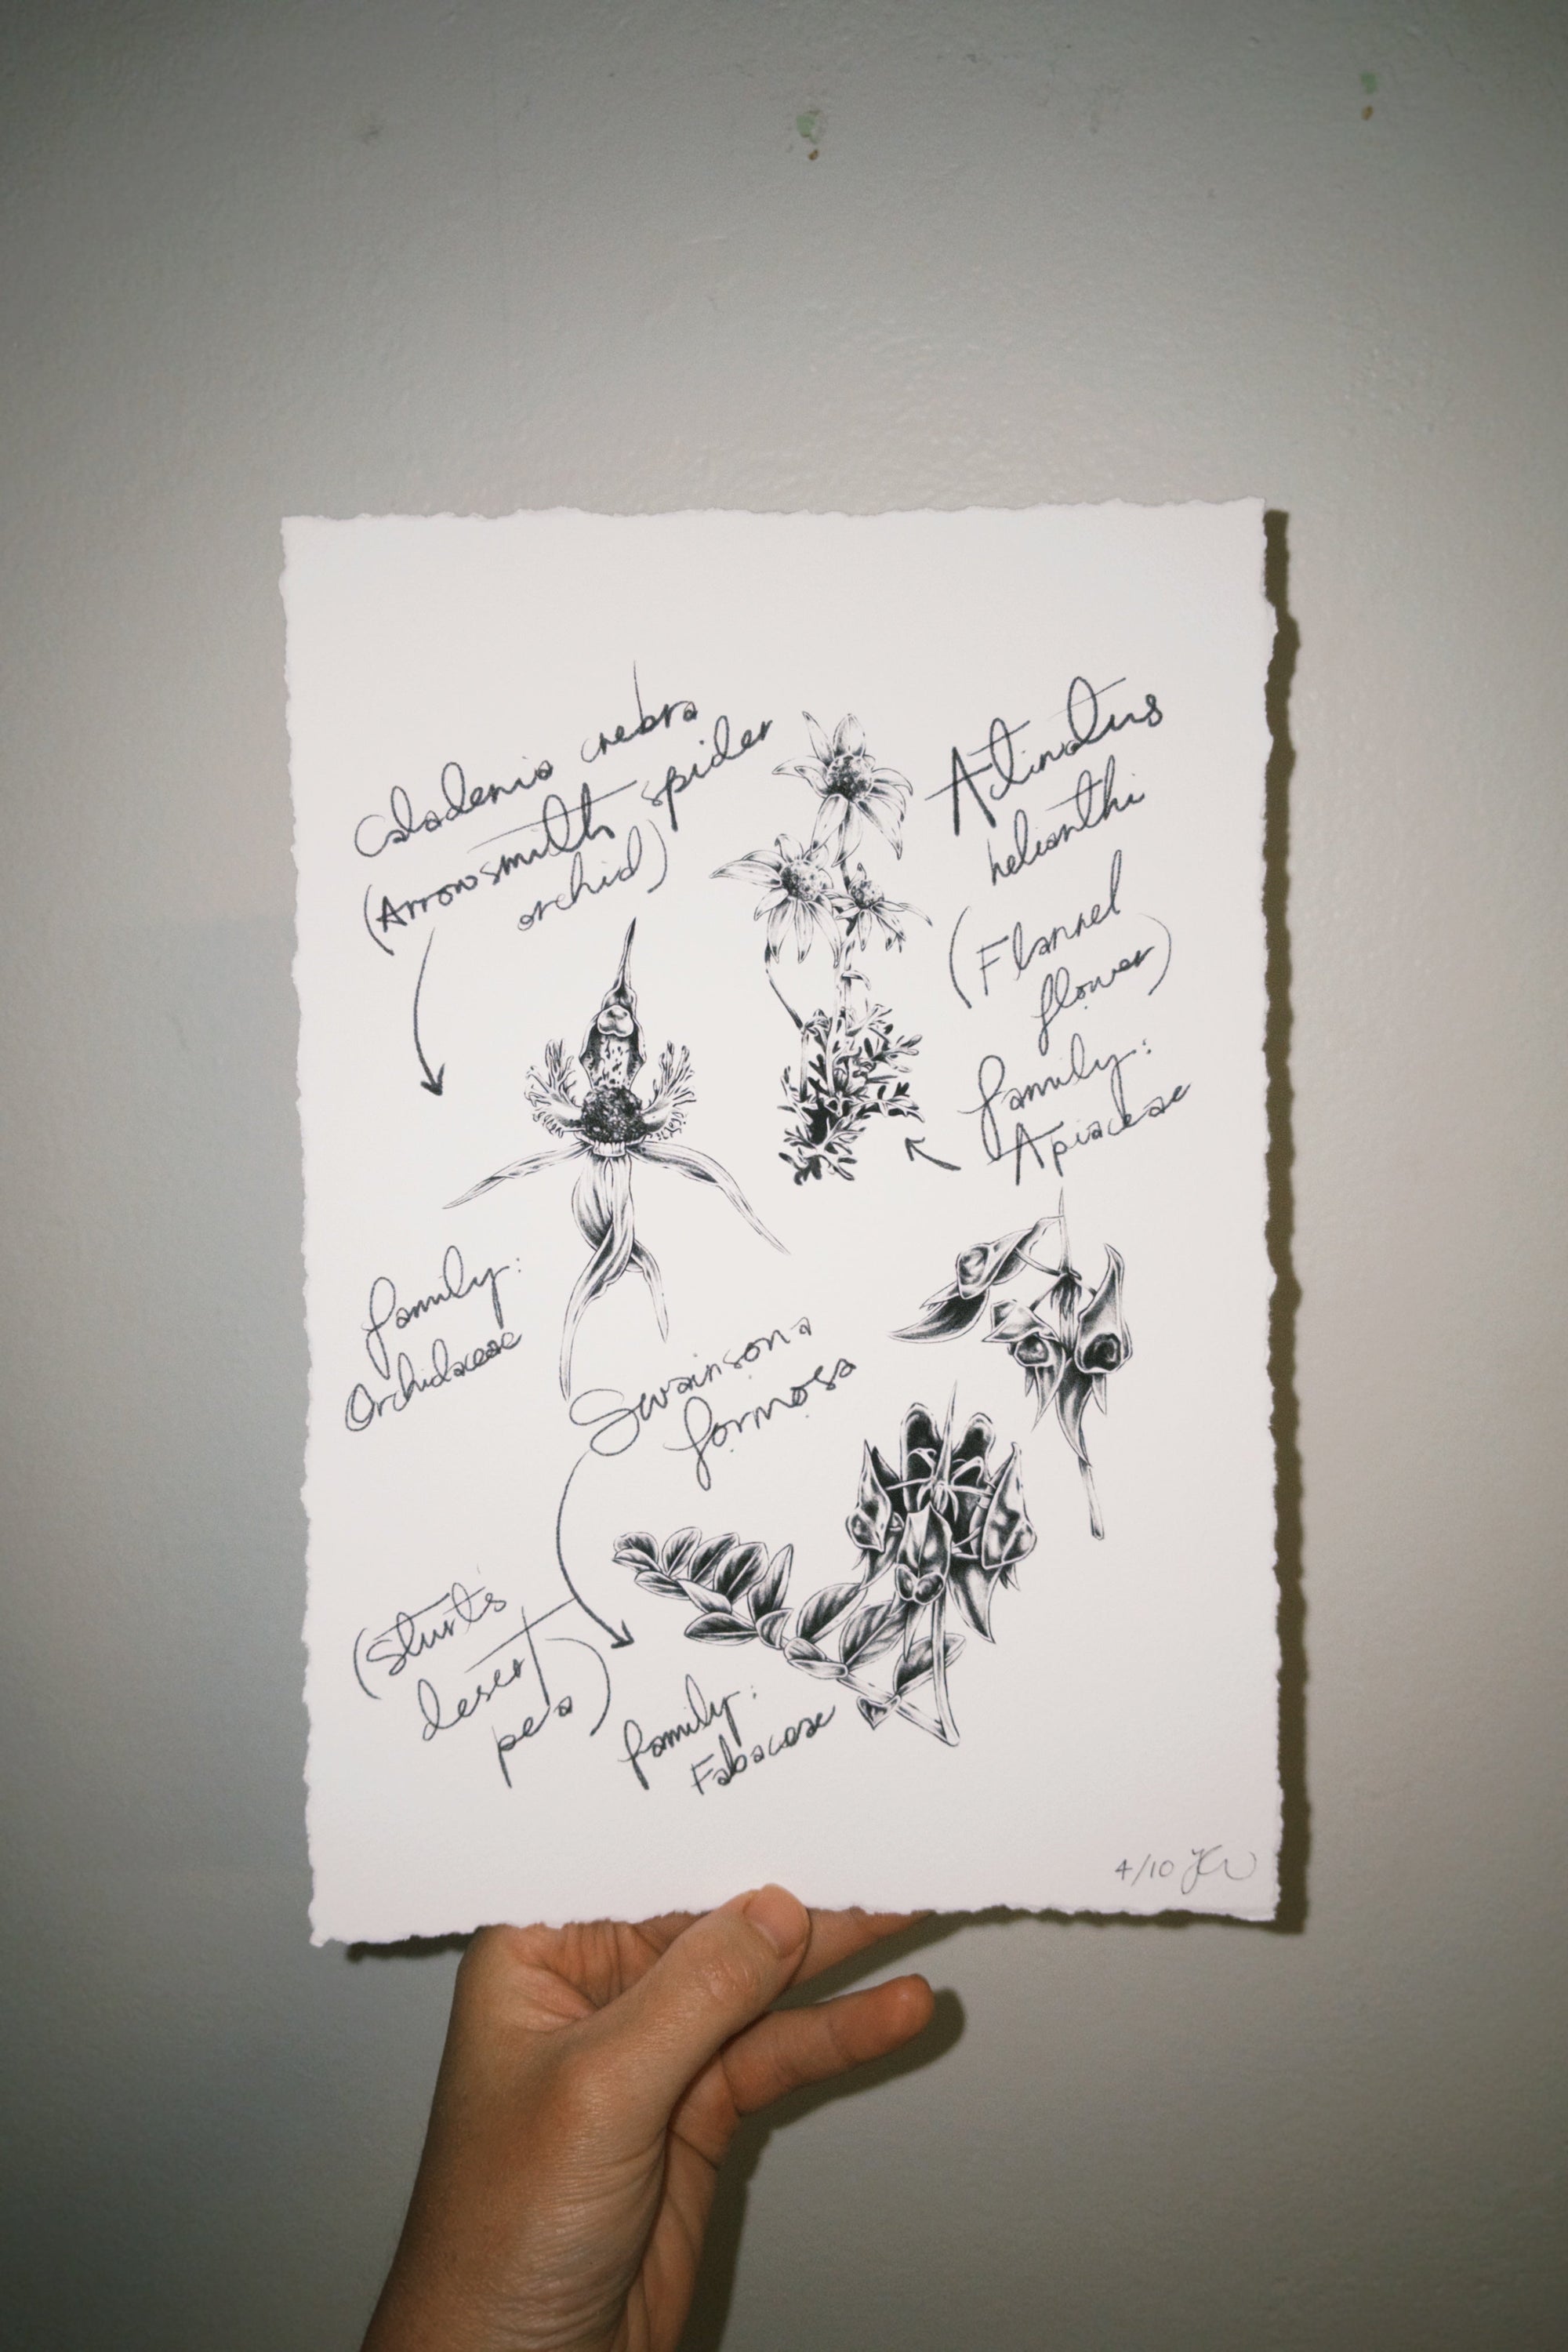 Caladenia crebra
(Arrowsmith spider
orchid)
family:
Orchidaceae
Actinotus
helianthi
(Flannel
flower)
family:
Apiaceae
Swainsona
formosa
(Sturt's
desert
pea)
family:
Fabaceae
4/10